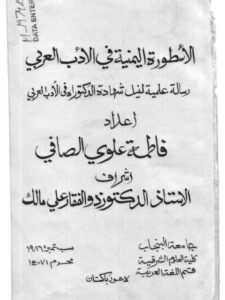 M-979
DATA ENTER
الأسطورة اليمنية في الأدب العربي
رسالة علمية لنيل شهادة الدكتوراه في الأدب العربي
إعداد
فاطمة علوي الصافي
إشراف
الأستاذ الدكتور ذو الفقار علي مالك
جامعة البنجاب
كلية العلوم الشرقية
قسم اللغة العربية
سبتمبر : ١٩٨٦
محرم : ١٤٠٧
لاهور باكستان